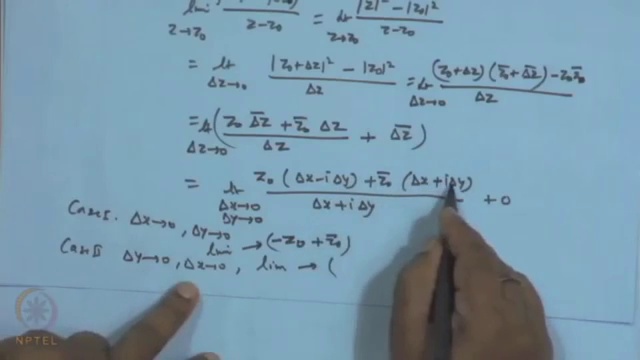 lim |z|² - |z₀|² / z - z₀ = lt z→z₀ |z|² - |z₀|² / z - z₀
= lt Δz→0 |z₀+Δz|² - |z₀|² / Δz = lt Δz→0 (z₀+Δz)(z̄₀+Δ̄z̄) - z₀z̄₀ / Δz
= lt Δz→0 ( z₀ Δ̄z̄ + z̄₀ Δz / Δz + Δ̄z̄ )
= lt Δx→0 Δy→0 z₀ (Δx - iΔy) + z̄₀ (Δx + iΔy) / Δx + iΔy + 0
Case I. Δx→0, Δy→0 lim → (-z₀ + z̄₀)
Case II Δy→0, Δx→0, lim → (
NPTEL